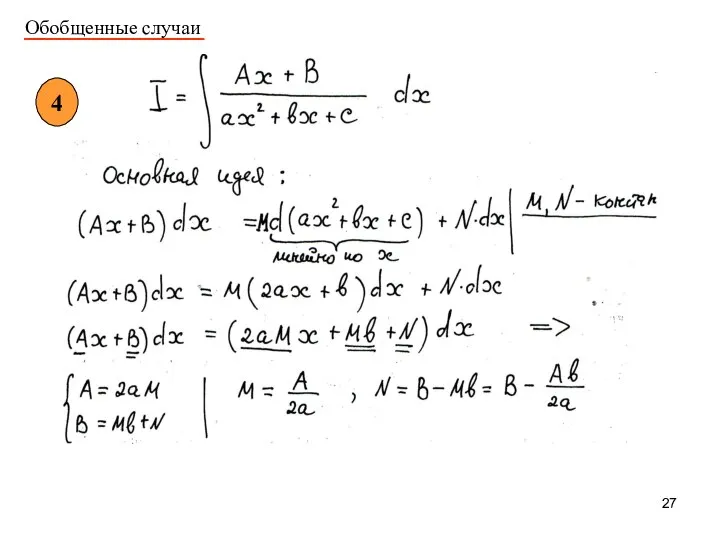 Обобщенные случаи
4
I = ∫ (Ax + B)/(ax² + вx + c) dx
Основная идея :
(Ax+B)dx = Md(ax² + вx + c) + N·dx | M, N – констан
линейно по x
(Ax+B)dx = M(2ax + в)dx + N·dx
(Ax+B)dx = (2aMx + Mв + N)dx =>
{ A = 2aM | M = A/2a , N = B – Mв = B – Aв/2a
B = Mв+N
27